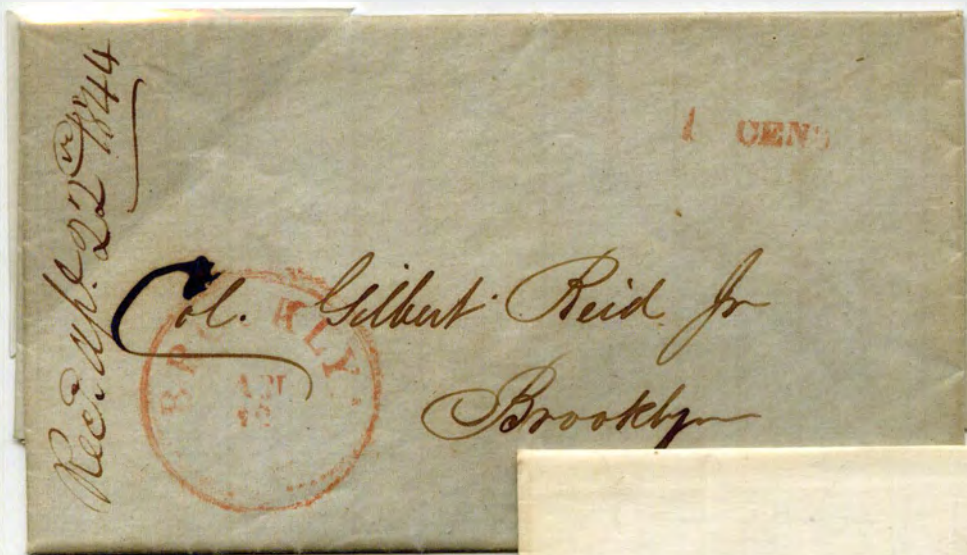 Recd Apl. 22nd 1844
1 CENT
Col. Gilbert Reid Jr
Brooklyn
BRO KLY